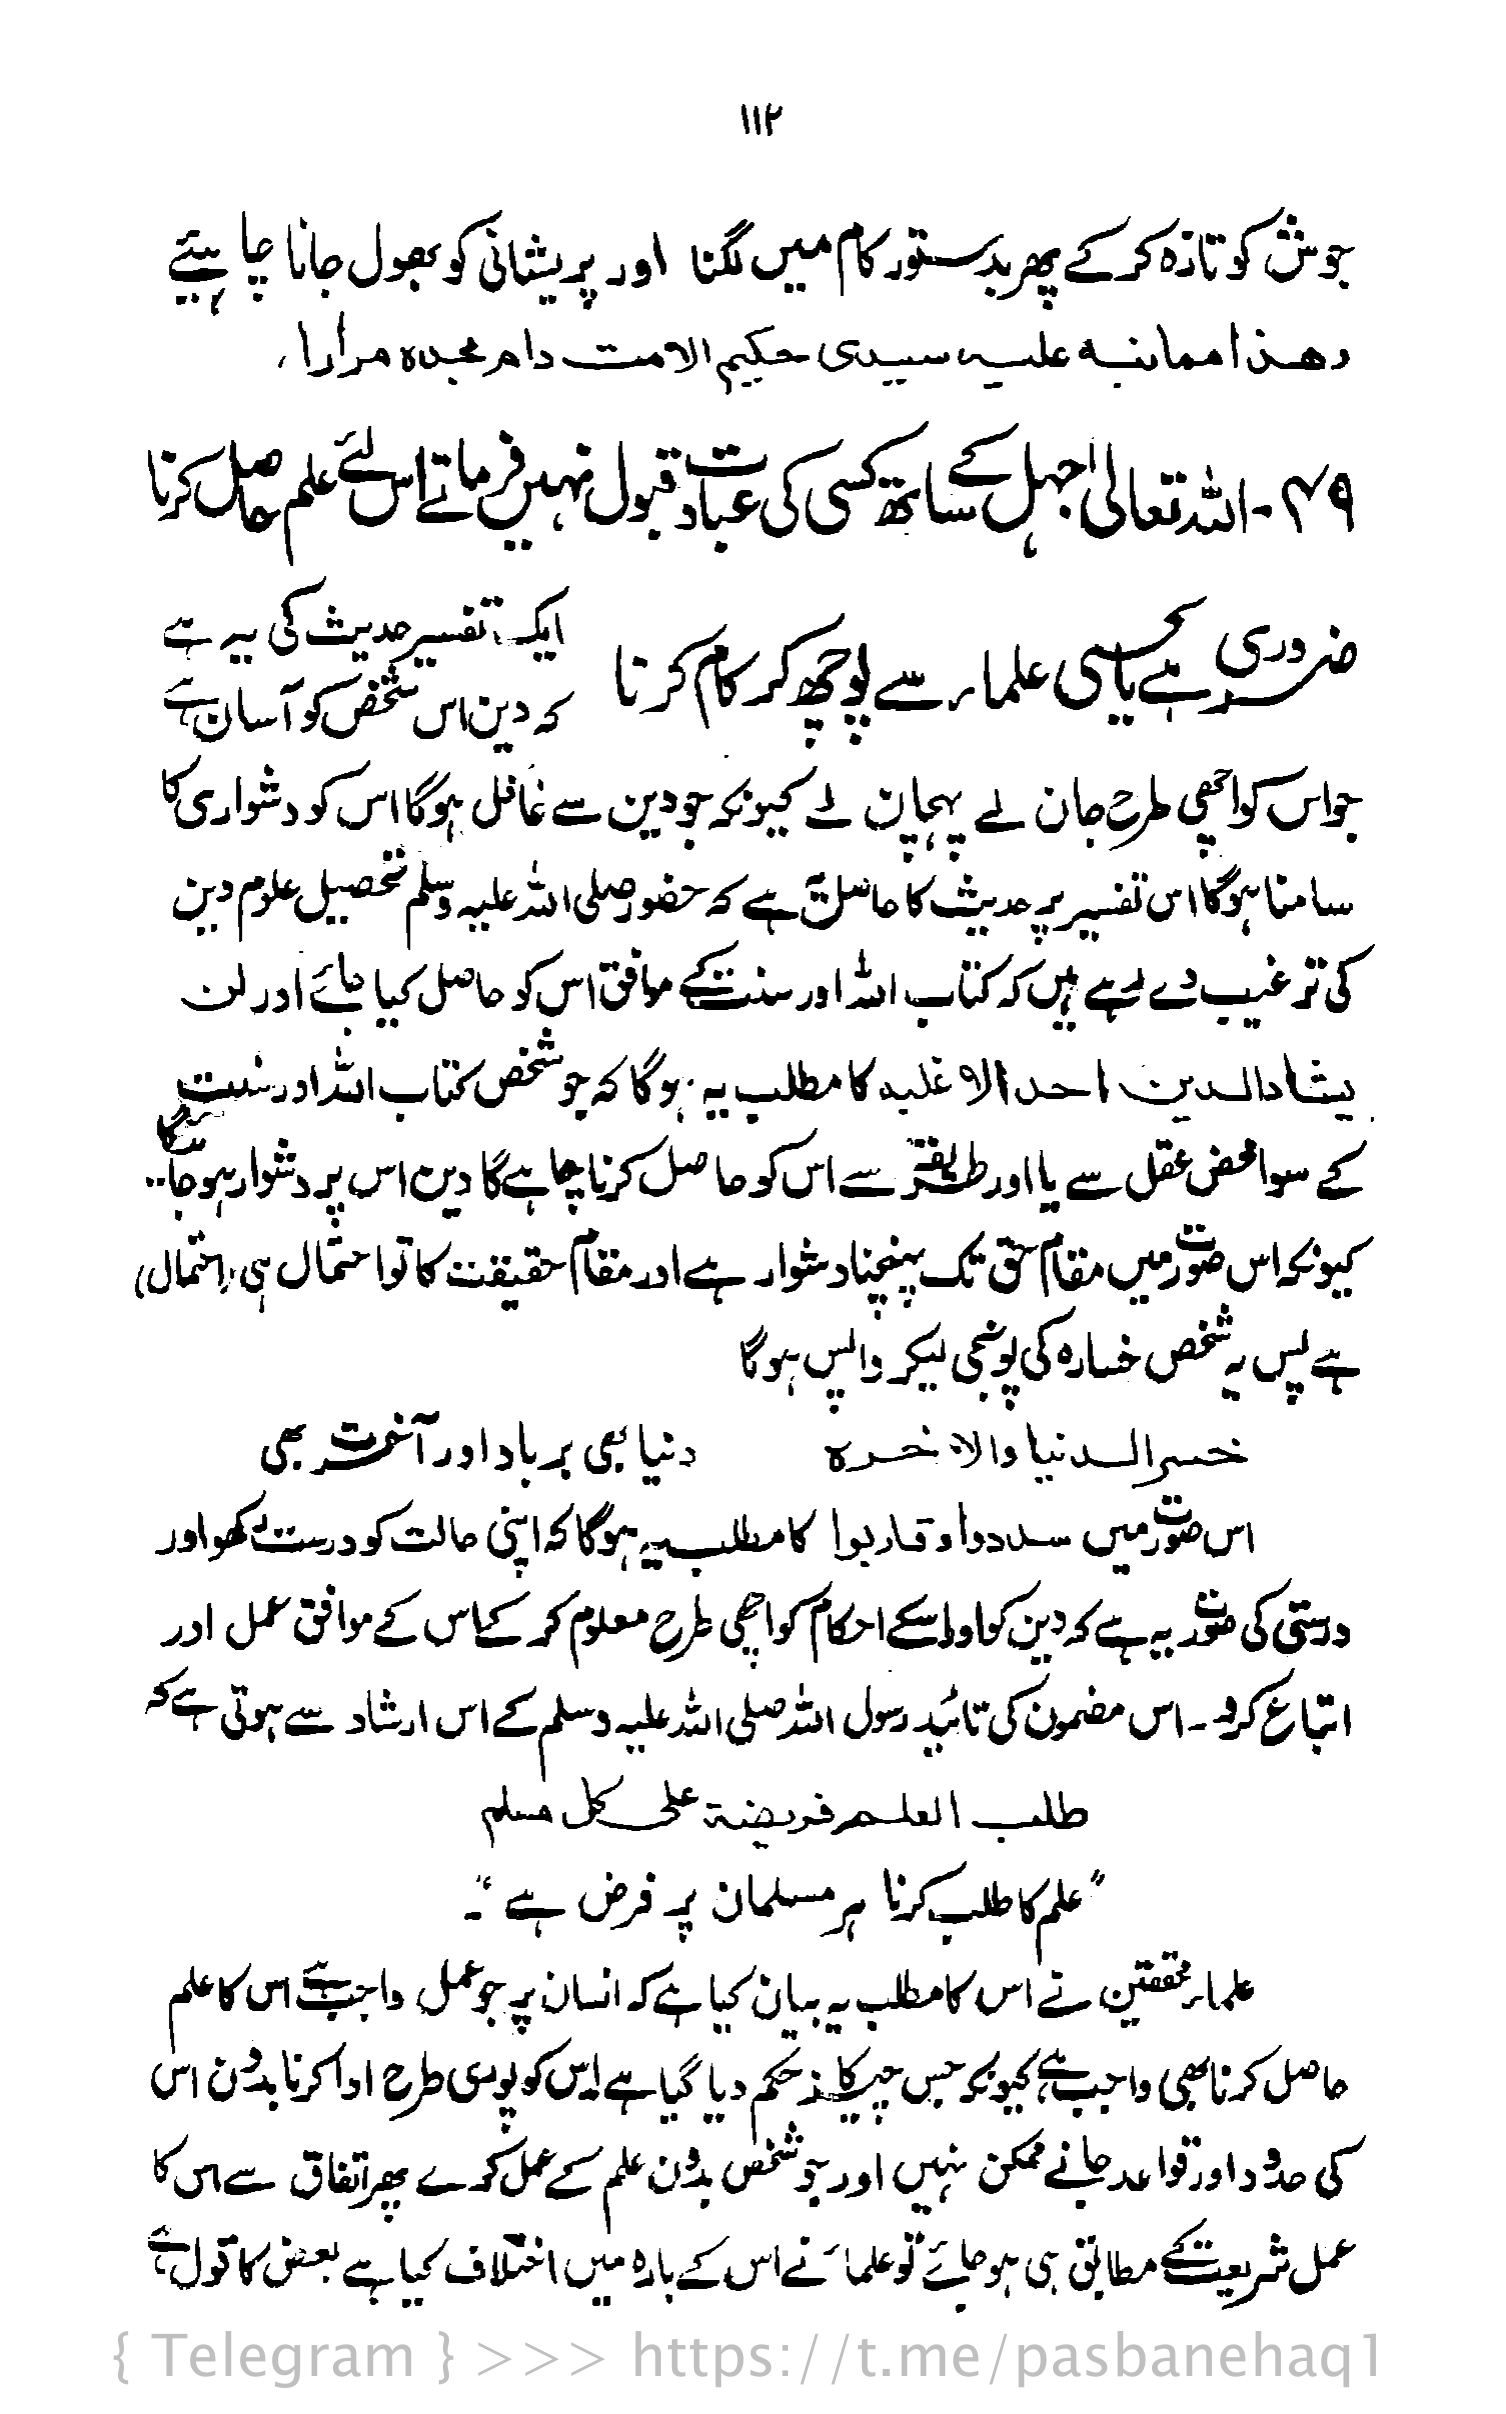 ۱۱۲
جوش کو تازہ کر کے پھر بدستور کام میں لگنا اور پریشانی کو بھول جانا چاہیئے
وھذا مما نبه علیه سیدی حکیم الامت دام مجدہ مرارا ،
۴۹ - اللہ تعالیٰ جہل کے ساتھ کسی کی عبادت قبول نہیں فرماتے اس لئے علم حاصل کرنا
ضروری ہے یا کسی علماء سے پوچھ کر کام کرنا
ایک تفسیر حدیث کی یہ ہے
کہ دین اس شخص کو آسان ہے
جو اس کو اچھی طرح جان لے پہچان لے کیونکہ جو دین سے غافل ہوگا اس کو دشواری کا
سامنا ہوگا اس تفسیر پر حدیث کا حاصل یہ ہے کہ حضور صلی اللہ علیہ وسلم تحصیل علوم دین
کی ترغیب دے رہے ہیں کہ کتاب اللہ اور سنت کے موافق اس کو حاصل کیا جائے اور لن
یشاد الدین احد الا غلبه کا مطلب یہ ہوگا کہ جو شخص کتاب اللہ اور سنت
کے سوا محض عقل سے یا اور طریقہ سے اس کو حاصل کرنا چاہے گا دین اس پر دشوار ہو جائے گا
کیونکہ اس صورت میں مقام حق تک پہنچنا دشوار ہے اور مقام حقیقت کا تو احتمال ہی (احتمال)
ہے پس یہ شخص خسارہ کی پونجی لیکر واپس ہوگا
خسر الدنیا والاخرہ دنیا بھی برباد اور آخرت بھی
اس صورت میں سددوا وقاربوا کا مطلب یہ ہوگا کہ اپنی حالت کو درست رکھو اور
درستی کی صورت یہ ہے کہ دین کو اور اسکے احکام کو اچھی طرح معلوم کر کے اس کے موافق عمل اور
اتباع کرو ۔ اس مضمون کی تائید رسول اللہ صلی اللہ علیہ وسلم کے اس ارشاد سے ہوتی ہے کہ
طلب العلم فریضة علی کل مسلم
"علم کا طلب کرنا ہر مسلمان پر فرض ہے"۔
علماء محققین نے اس کا مطلب یہ بیان کیا ہے کہ انسان پر جو عمل واجب ہے اس کا علم
حاصل کرنا بھی واجب ہے کیونکہ جس چیز کا حکم دیا گیا ہے اس کو پوری طرح ادا کرنا بدون اس
کی حدود اور قواعد جانے ممکن نہیں اور جو شخص بدون علم کے عمل کرے پھر اتفاق سے اس کا
عمل شریعت کے مطابق ہی ہو جائے تو علماء نے اس کے بارہ میں اختلاف کیا ہے بعض کا قول ہے
{ Telegram } >>> https://t.me/pasbanehaq1